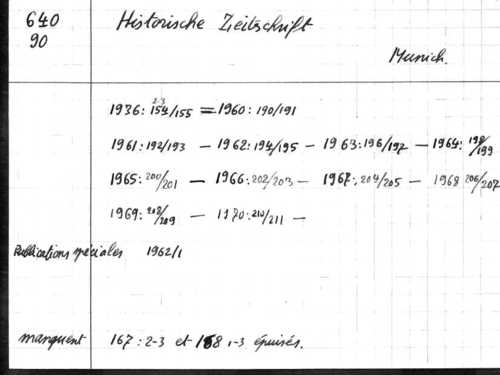 640 Historische Zeitschrift
90
Munich.
2-3
1936: 154/155 = 1960: 190/191
1961: 192/193 — 1962: 194/195 — 1963: 196/197 — 1964: 198/199
1965: 200/201 — 1966: 202/203 — 1967: 204/205 — 1968 206/207
1969: 208/209 — 1970: 210/211 —
Publications spéciales 1962/1
manquent 167: 2-3 et 168 1-3 épuisés.